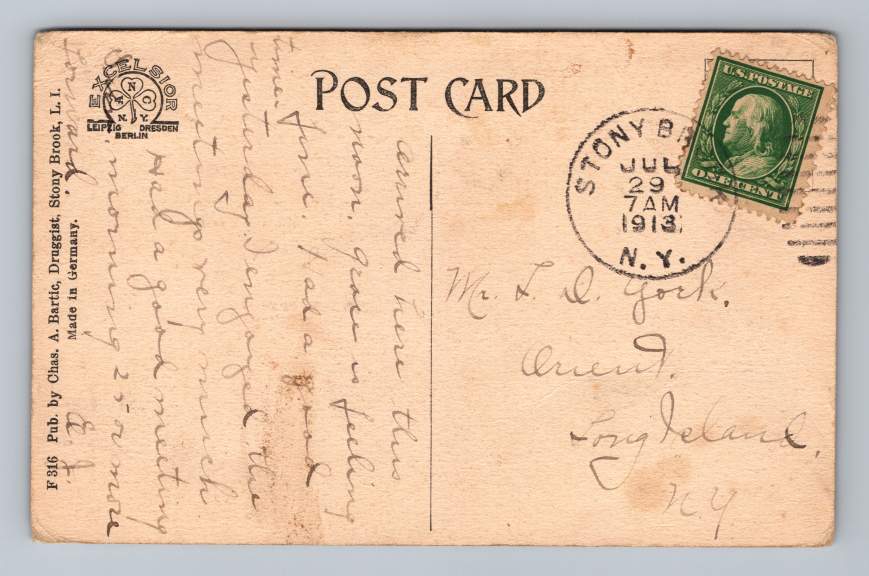 POST CARD
EXCELSIOR
A N C
N.Y.
LEIPZIG DRESDEN
BERLIN
F 316 Pub. by Chas. A. Bartic, Druggist, Stony Brook, L. I.
Made in Germany.
arrived here this
noon, grace is feeling
fine. Had a good
time
yesterday, I enjoyed the
meetings very much
Had a good meeting
morning 25 or more
forward.
E. J.
U.S. POSTAGE
ONE CENT
STONY BR
JUL
29
7AM
1913
N. Y.
Mr. L. D. York.
Orient.
Long Island,
N.Y